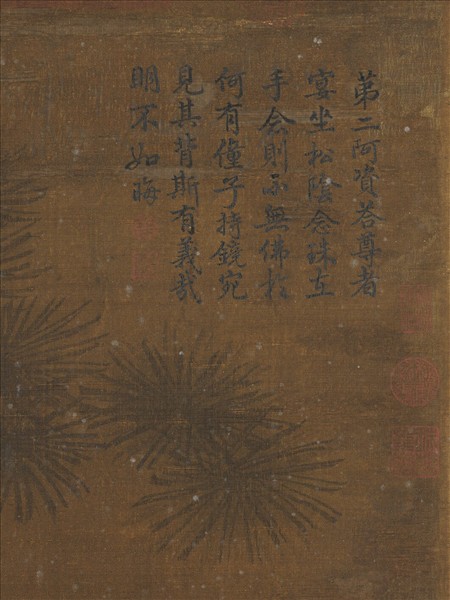 苐二阿資荅尊者
宴坐松陰念珠在
手念則不無佛於
何有僮子持鏡宛
見其背斯有義哉
明不如晦